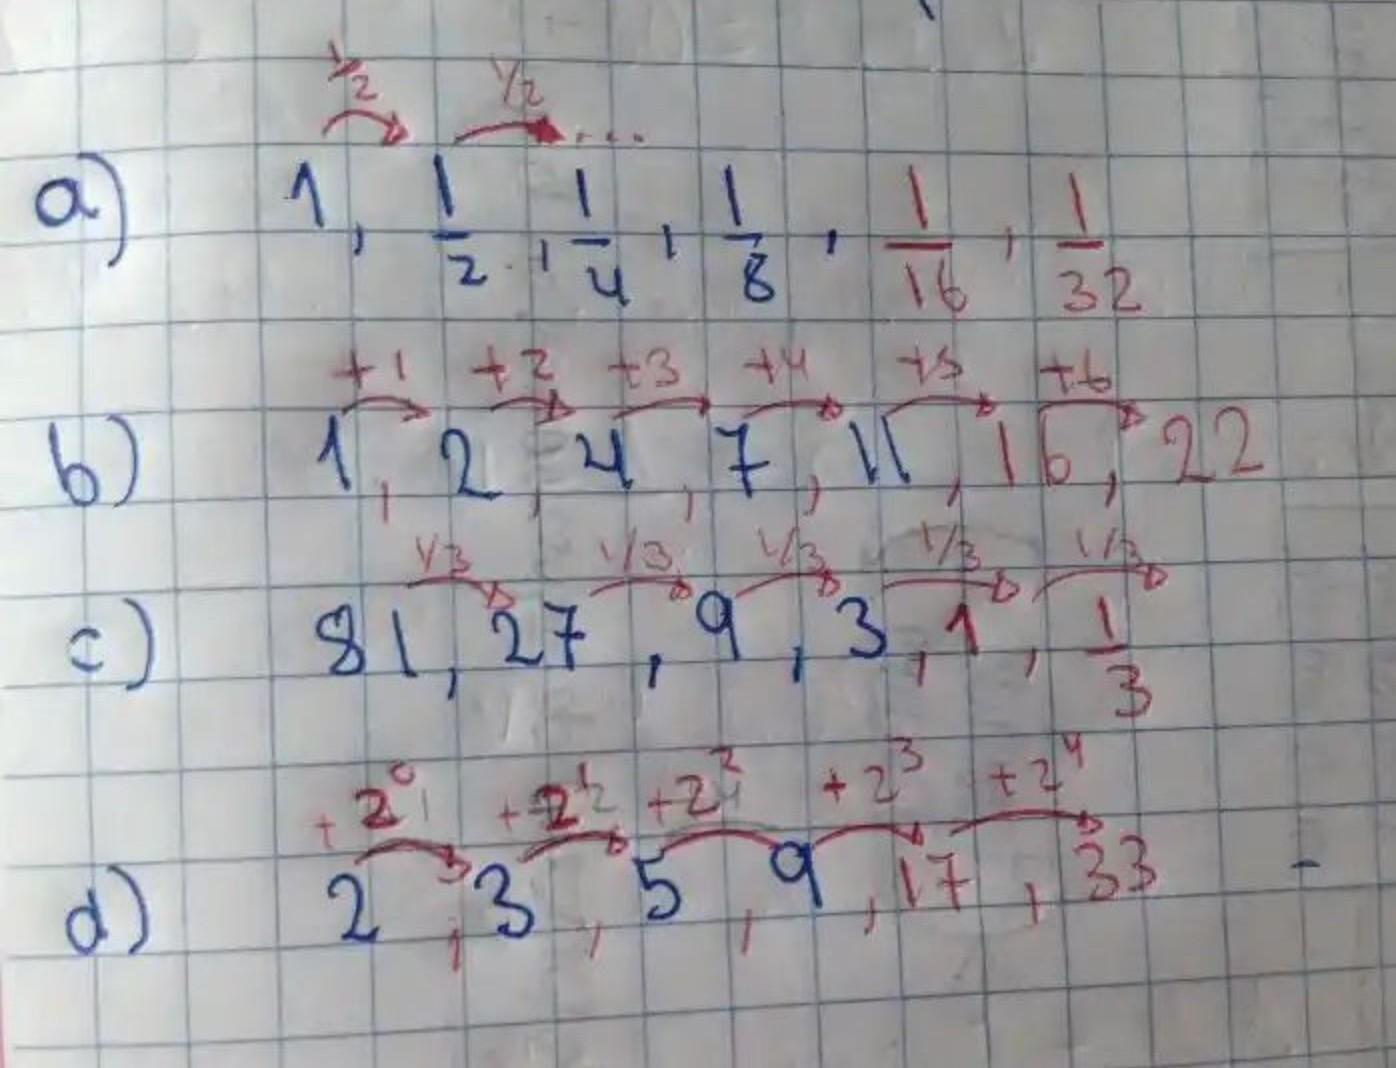 1/2 1/2 ...
a) 1, 1/2, 1/4, 1/8, 1/16, 1/32
+1 +2 +3 +4 +5 +6
b) 1, 2, 4, 7, 11, 16, 22
1/3 1/3 1/3 1/3 1/3
c) 81, 27, 9, 3, 1, 1/3
+2⁰ +2¹ +2² +2³ +2⁴
d) 2, 3, 5, 9, 17, 33 -